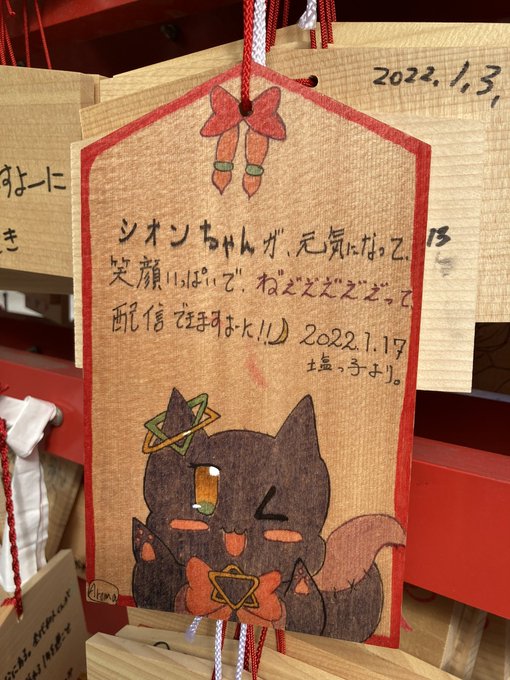 2022.1.3.
すよーに
き
13
シオンちゃんが、元気になって、
笑顔いっぱいで、ねぇぇぇぇぇぇって、
配信できますよーに!!🌙 2022.1.17
塩っ子より。
Aroma